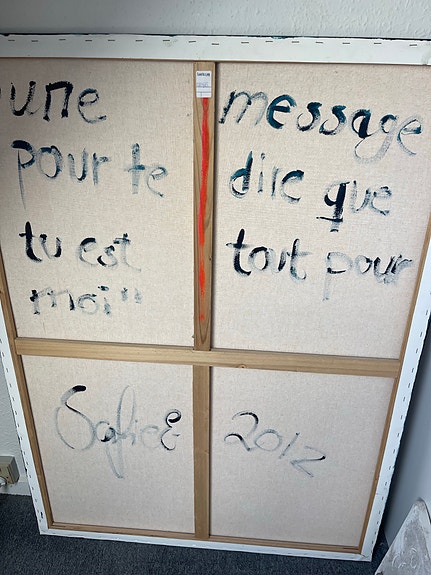 une message
pour te dire que
tu est tout pour
moi"
2012